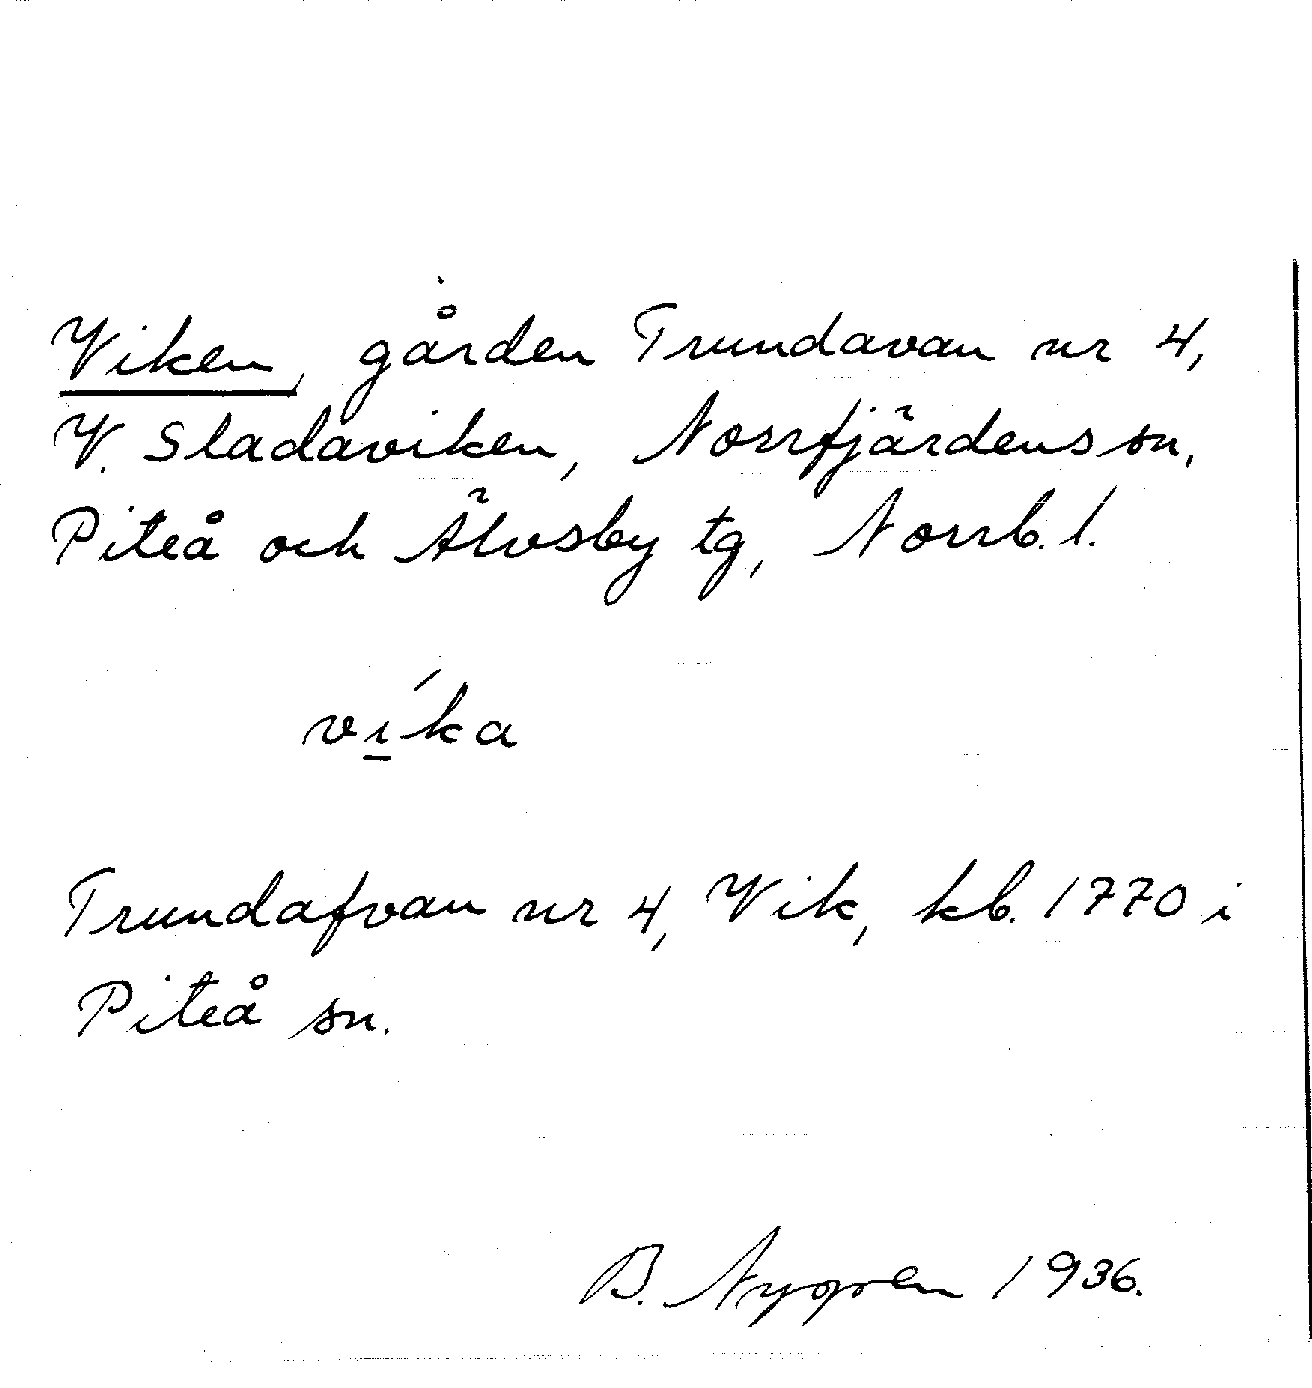 Viken, gården Trundavan nr 4,
V. Sladaviken, Norrfjärdens sn,
Piteå och Älvsby tg, Norrb. l.
ví̱ka
Trundafvan nr 4, Vik, kb. 1770 i
Piteå sn.
B. Nygren 1936.